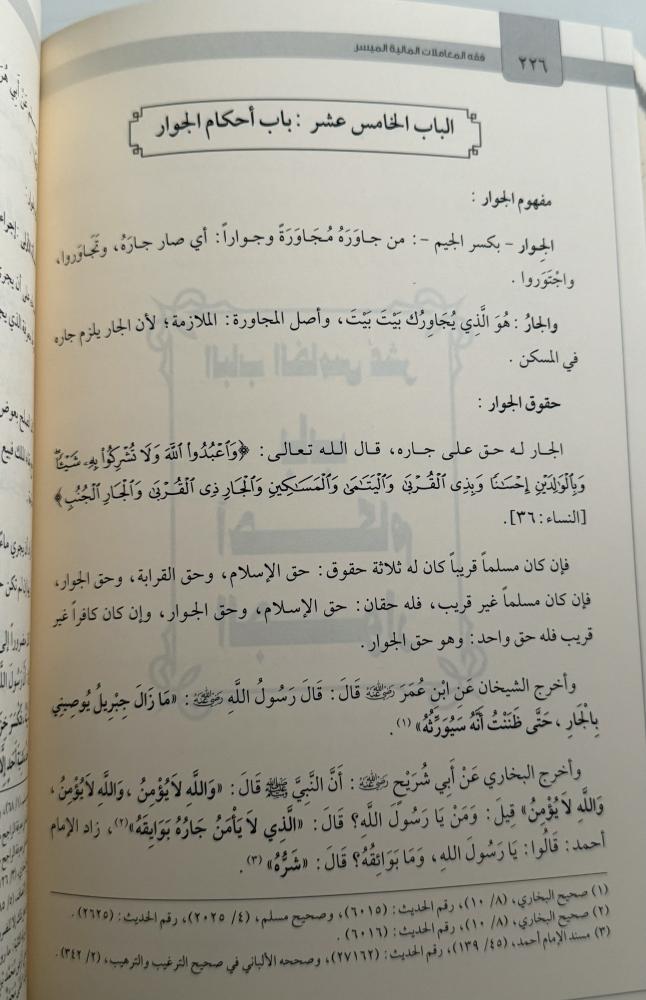 فقه المعاملات المالية الميسر
٢٢٦
الباب الخامس عشر : باب أحكام الجوار
مفهوم الجوار :
الجِوار - بكسر الجيم -: من جاوَرَهُ مُجَاوَرَةً وجواراً: أي صار جارَهُ، وتَجَاوَروا،
واجْتَوَروا .
والجارُ : هُوَ الَّذِي يُجَاوِرُك بَيْتَ بَيْتَ، وأصل المجاورة: الملازمة؛ لأن الجار يلزم جاره
في المسكن .
حقوق الجوار :
الجار له حق على جاره، قال الله تعالى: ﴿وَٱعْبُدُوا۟ ٱللَّهَ وَلَا تُشْرِكُوا۟ بِهِۦ شَيْـًٔا ۖ
وَبِٱلْوَٰلِدَيْنِ إِحْسَـٰنًا وَبِذِى ٱلْقُرْبَىٰ وَٱلْيَتَـٰمَىٰ وَٱلْمَسَـٰكِينِ وَٱلْجَارِ ذِى ٱلْقُرْبَىٰ وَٱلْجَارِ ٱلْجُنُبِ﴾
[النساء: ٣٦].
فإن كان مسلماً قريباً كان له ثلاثة حقوق: حق الإسلام، وحق القرابة، وحق الجوار،
فإن كان مسلماً غير قريب، فله حقان: حق الإسلام، وحق الجوار، وإن كان كافراً غير
قريب فله حق واحد: وهو حق الجوار.
وأخرج الشيخان عَنِ ابْنِ عُمَرَ رضي الله عنهما قَالَ: قَالَ رَسُولُ اللَّهِ ﷺ: «مَا زَالَ جِبْرِيلُ يُوصِينِي
بِالْجَارِ، حَتَّى ظَنَنْتُ أَنَّهُ سَيُوَرِّثُهُ» (١).
وأخرج البخاري عَنْ أَبِي شُرَيْحٍ رضي الله عنه: أَنَّ النَّبِيَّ ﷺ قَالَ: «وَاللَّهِ لاَ يُؤْمِنُ، وَاللَّهِ لاَ يُؤْمِنُ،
وَاللَّهِ لاَ يُؤْمِنُ» قِيلَ: وَمَنْ يَا رَسُولَ اللَّهِ؟ قَالَ: «الَّذِي لاَ يَأْمَنُ جَارُهُ بَوَايِقَهُ» (٢)، زاد الإمام
أحمد: قَالُوا: يَا رَسُولَ اللهِ، وَمَا بَوَائِقُهُ؟ قَالَ: «شَرُّهُ» (٣).
(١) صحيح البخاري، (٨/ ١٠)، رقم الحديث: (٦٠١٥)، وصحيح مسلم، (٤/ ٢٠٢٥)، رقم الحديث: (٢٦٢٥).
(٢) صحيح البخاري، (٨/ ١٠)، رقم الحديث: (٦٠١٦).
(٣) مسند الإمام أحمد، (٤٥/ ١٣٩)، رقم الحديث: (٢٧١٦٢)، وصححه الألباني في صحيح الترغيب والترهيب، (٢/ ٣٤٢).